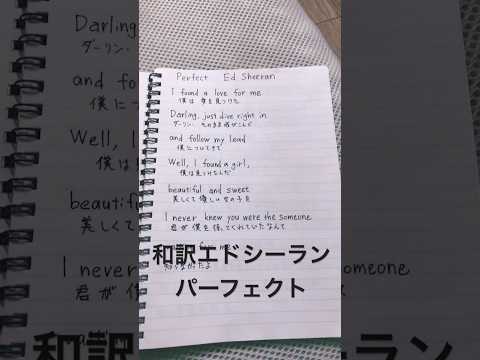 Perfect Ed Sheeran
I found a love for me
僕は愛を見つけた
Darling, just dive right in
ダーリン、そのまま飛びこんで
and follow my lead
僕についてきて
Well, I found a girl,
僕は見つけたんだ
beautiful and sweet
美しくて優しい女の子を
I never knew you were the someone
君が僕を待っててくれていたなんて
和訳エドシーラン
パーフェクト
Darling,
ダーリン、
and fo
僕につ
Well, I
僕は
beautiful
美しくて
I never
君が
omeone